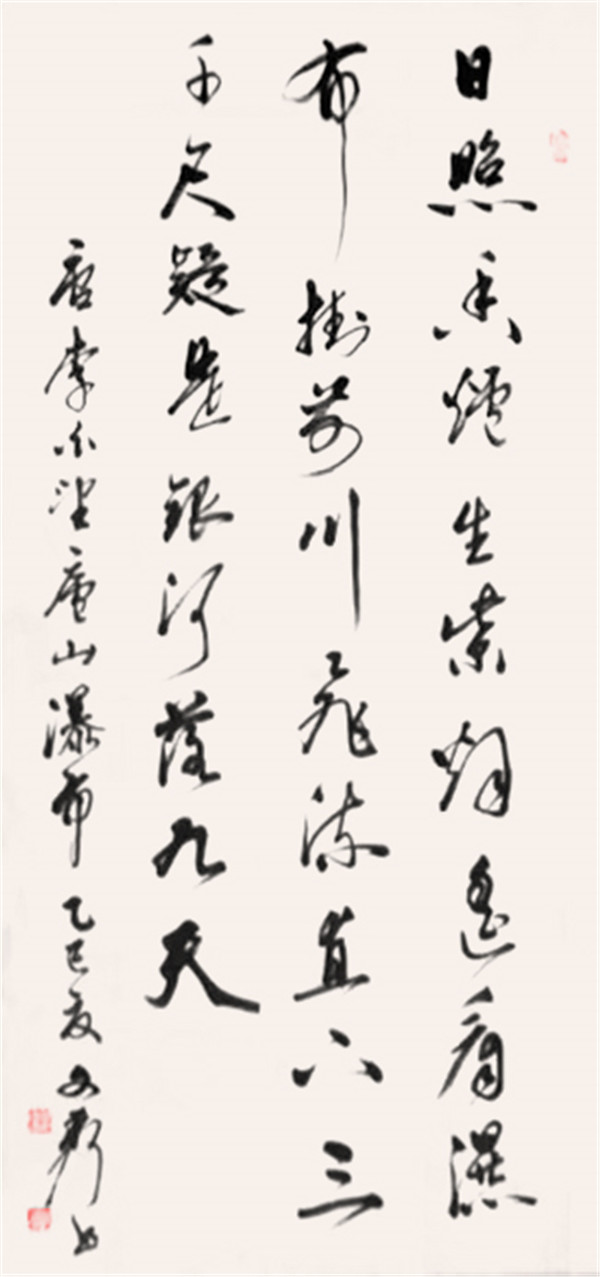 日照香爐生紫烟遙看瀑
布掛前川飛流直下三
千尺疑是銀河落九天
唐李白望廬山瀑布 乙巳夏 文